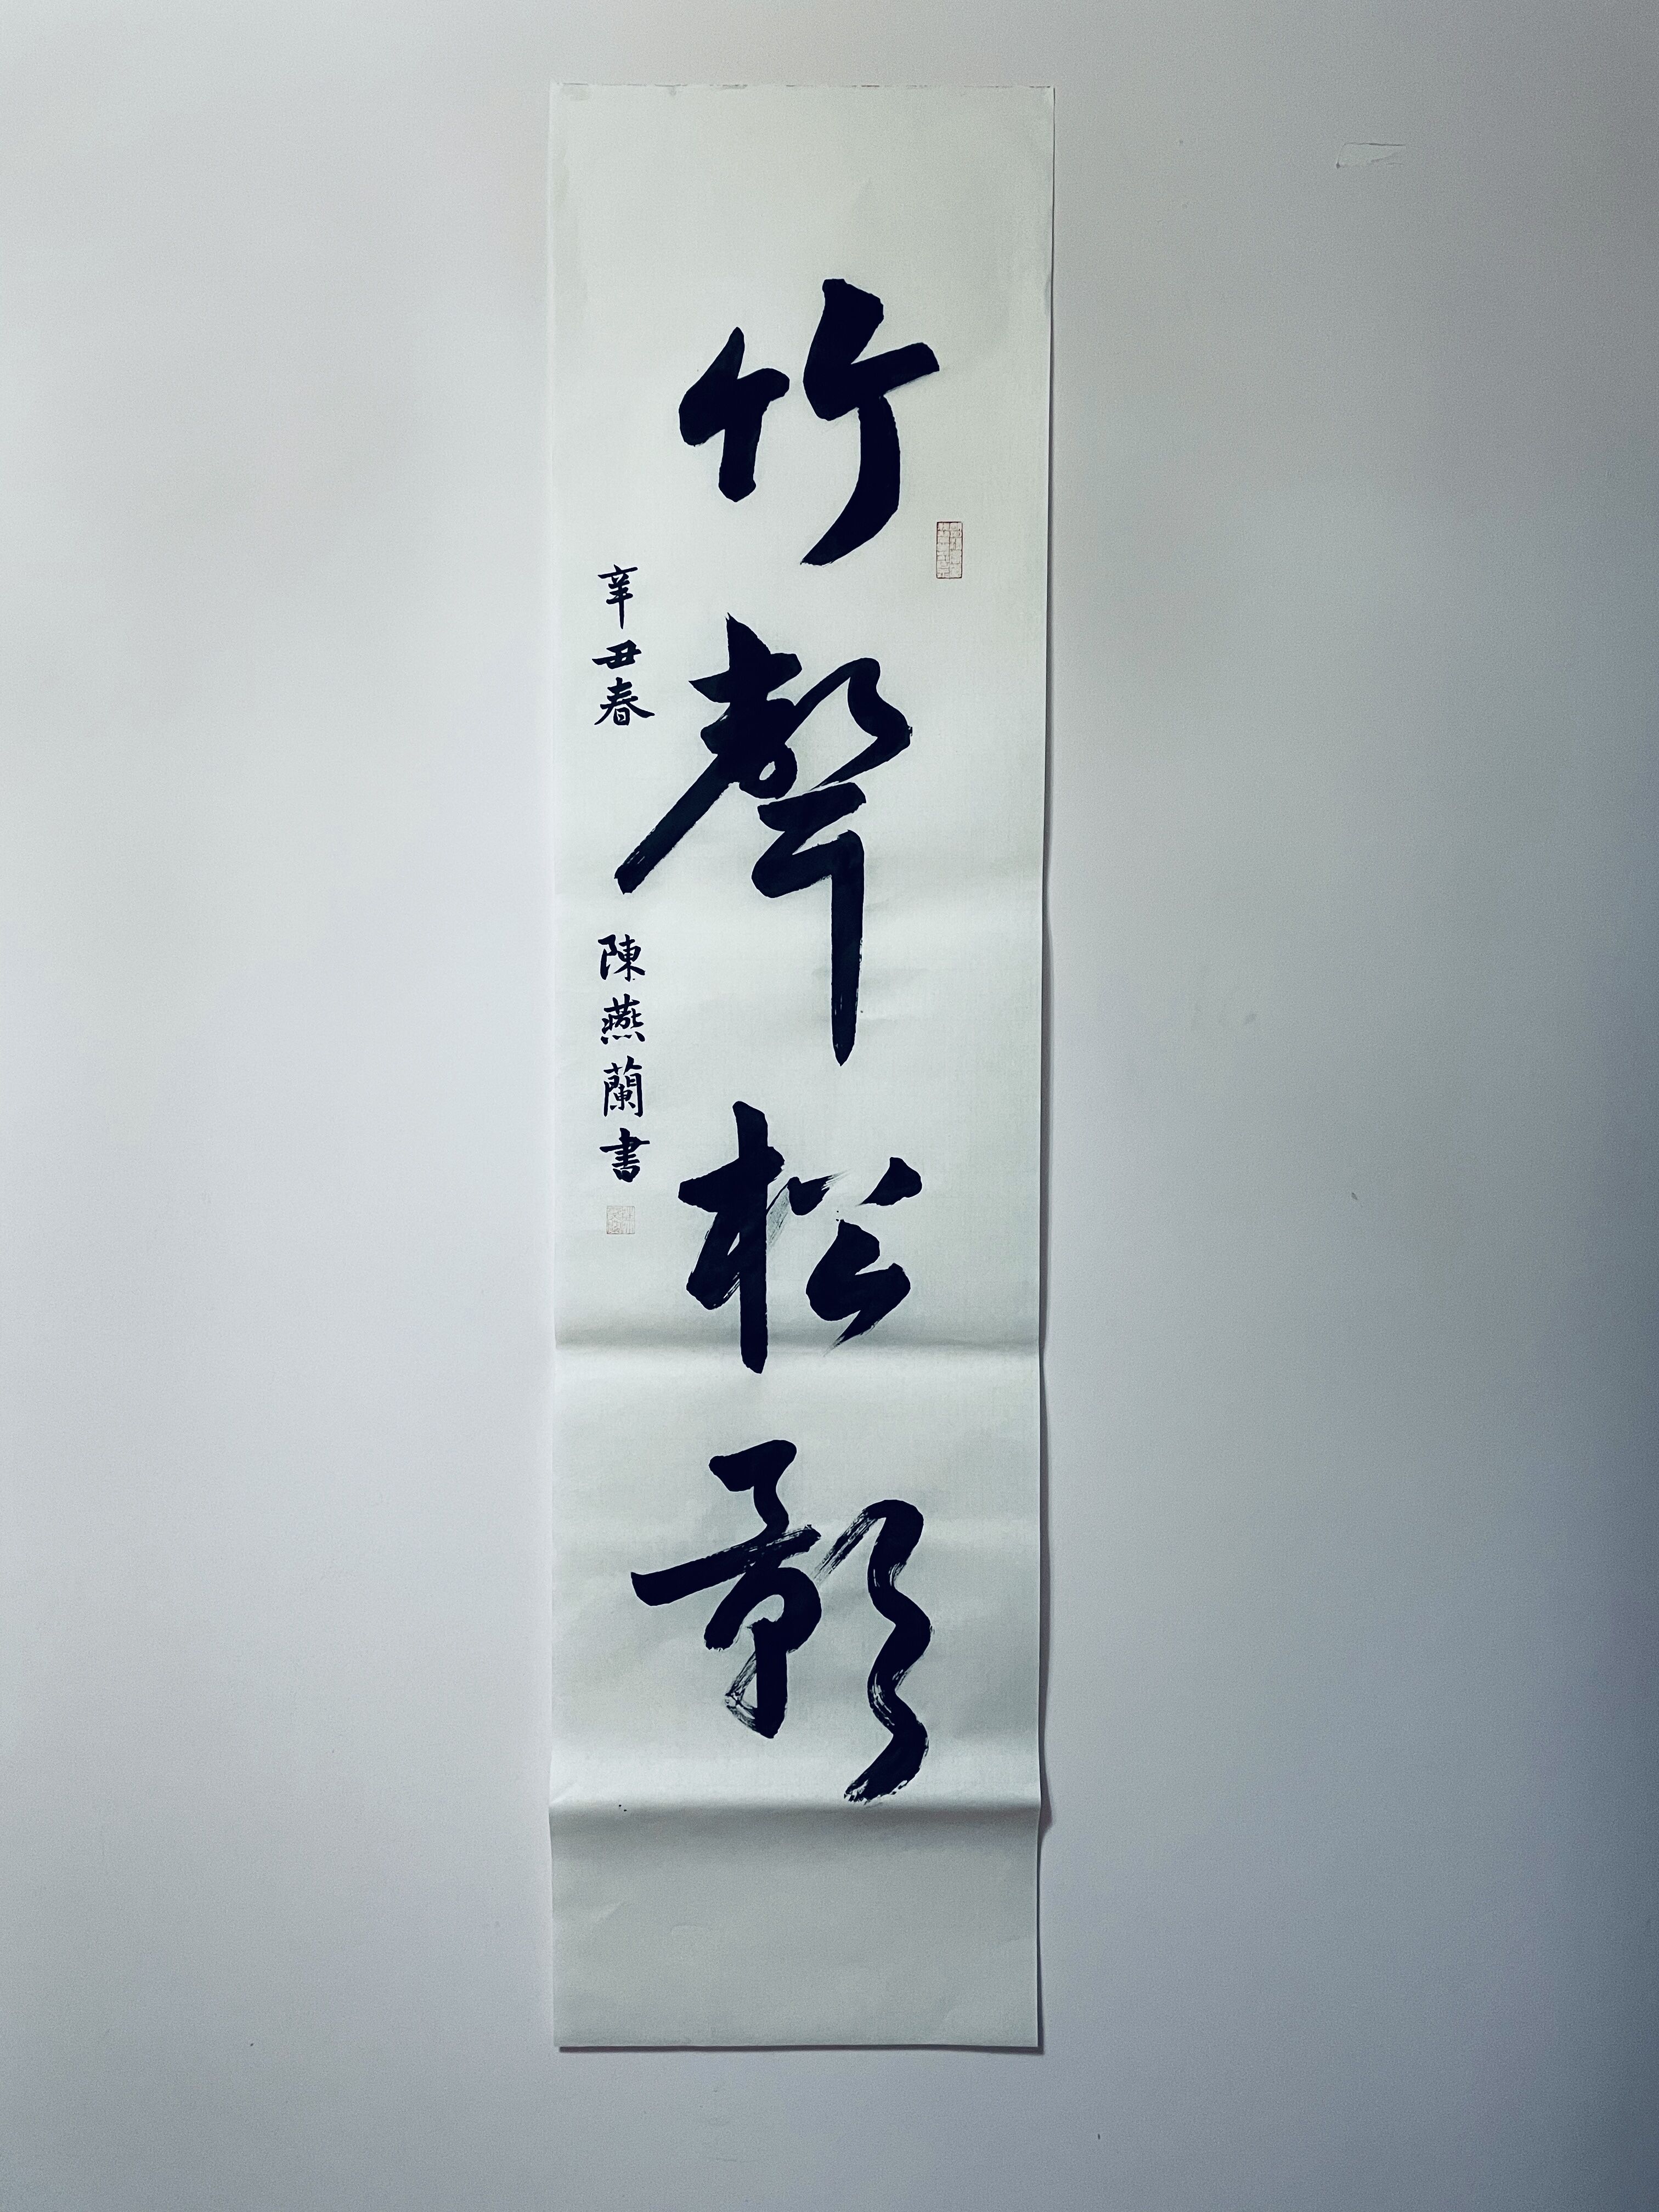 竹聲松影
辛丑春 陳燕蘭書